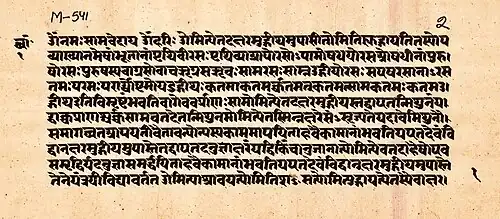 M-541
२
ॐ नमः सामवेदाय ॐ हरिः ओमित्येतदक्षरमुद्गीथमुपासीतोमिति ह्युद्गायति तस्योप
व्याख्यानमेषां भूतानां पृथिवी रसः पृथिव्या आपो रसोपामोषधयो रस ओषधीनां पुरु
षो रसः पुरुषस्य वाग्रसो वाच ऋग्रस ऋचः साम रसः साम्न उद्गीथो रसः स एष रसानाᳪ रस
तमः परमः परार्ध्योष्टमो य उद्गीथः कतमा कतमर्क्कतमत्कतमत्साम कतमः कतम उ
द्गीथ इति विमृष्टं भवति वागेवर्क्प्राणः सामोमित्येतदक्षरमुद्गीथस्तद्वा एतन्मिथुनं य
द्वाक्च प्राणश्चर्क्च साम च तदेतन्मिथुनमोमित्येतस्मिन्नक्षरे सᳪसृज्यते यदा वै मिथुनौ
समागच्छत आपयतो वै तावन्योन्यस्य काममापयिता ह वै कामानां भवति य एतदेवं वि
द्वानक्षरमुद्गीथमुपास्ते तद्वा एतदनुज्ञाक्षरं यद्धि किंचानुजानात्योमित्येव तदाहैषो एव
समृद्धिर्यदनुज्ञा समर्धयिता ह वै कामानां भवति य एतदेवं विद्वानक्षरमुद्गीथमुपास्ते
तेनेयं त्रयी विद्या वर्तत ओमित्याश्रावयत्योमिति शᳪसत्योमित्युद्गायत्येतस्यैवाक्षर